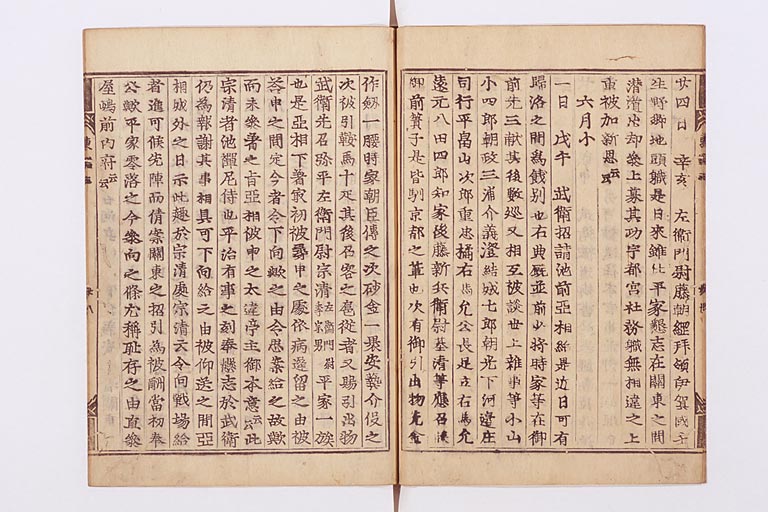 廿四日 辛亥 左衛門尉藤朝綱拜領伊賀國壬
生野郷地頭職是日来雖仕平家懇志在關東之間
潜遁出却參上募其功宇都宮社務職無相違之上
重被加新恩云云
六月小
一日 戊午 武衛招請池前亞相給是近日可有
歸洛之間爲餞別也右典厩並前少將時家等在御
前先三獻其後數巡又相互被談世上雜事等小山
小四郎朝政三浦介義澄結城七郎朝光下河邊庄
司行平畠山次郎重忠橘右馬允公長足立右馬允
遠元八田四郎知家後藤新兵衛尉基清等應召候
御前簀子是皆馴京都之輩也次有御引出物先金
作劔一腰時家朝臣傳之次砂金一裹安藝介役之
次被引鞍馬十疋其後召客之扈從者又賜引出物
武衛先召弥平左衛門尉宗清左衛門尉季宗男平家一族
也是亞相下著最初被尋申之處依病遲留之由被
荅申之間定今者令下向歟之由令思案給之故歟
而未參著之旨亞相被申之太違亭主御本意云云此
宗清者池禪尼侍也平治有事之刻奉懸志於武衛
仍爲報謝其事相具可下向給之由被仰送之間亞
相城外之日示此趣於宗清處宗清云令向戰場給
者進可候先陣而倩案關東之招引爲被酬當初奉
公歟平家零落之今參向之條尤稱恥存之由直參
屋嶋前内府云云